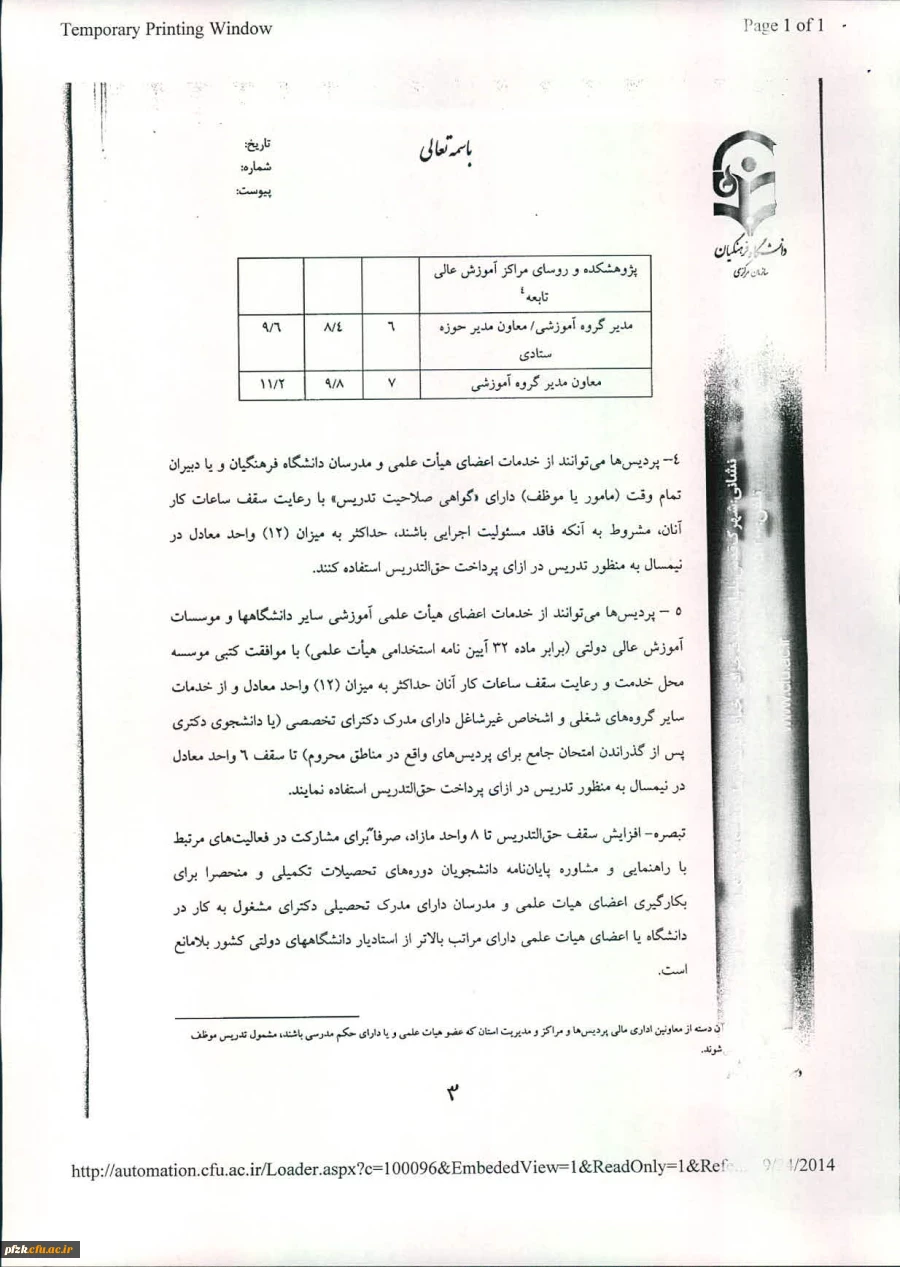 Temporary Printing Window
Page 1 of 1
باسمه تعالی
تاریخ:
شماره:
پیوست:
دانشگاه فرهنگیان
سازمان مرکزی
پژوهشکده و روسای مراکز آموزش عالی
تابعه٤
مدیر گروه آموزشی/ معاون مدیر حوزه ٦ ٨/٤ ٩/٦
ستادی
معاون مدیر گروه آموزشی ٧ ٩/٨ ١١/٢
٤– پردیس‌ها می‌توانند از خدمات اعضای هیأت علمی و مدرسان دانشگاه فرهنگیان و یا دبیران
تمام وقت (مامور یا موظف) دارای «گواهی صلاحیت تدریس» با رعایت سقف ساعات کار
آنان، مشروط به آنکه فاقد مسئولیت اجرایی باشند، حداکثر به میزان (١٢) واحد معادل در
نیمسال به منظور تدریس در ازای پرداخت حق‌التدریس استفاده کنند.
٥ – پردیس‌ها می‌توانند از خدمات اعضای هیأت علمی آموزشی سایر دانشگاهها و موسسات
آموزش عالی دولتی (برابر ماده ٣٢ آیین نامه استخدامی هیأت علمی) با موافقت کتبی موسسه
محل خدمت و رعایت سقف ساعات کار آنان حداکثر به میزان (١٢) واحد معادل و از خدمات
سایر گروه‌های شغلی و اشخاص غیرشاغل دارای مدرک دکترای تخصصی (یا دانشجوی دکتری
پس از گذراندن امتحان جامع برای پردیس‌های واقع در مناطق محروم) تا سقف ٦ واحد معادل
در نیمسال به منظور تدریس در ازای پرداخت حق‌التدریس استفاده نمایند.
تبصره– افزایش سقف حق‌التدریس تا ٨ واحد مازاد، صرفاً برای مشارکت در فعالیت‌های مرتبط
با راهنمایی و مشاوره پایان‌نامه دانشجویان دوره‌های تحصیلات تکمیلی و منحصرا برای
بکارگیری اعضای هیات علمی و مدرسان دارای مدرک تحصیلی دکترای مشغول به کار در
دانشگاه یا اعضای هیات علمی دارای مراتب بالاتر از استادیار دانشگاههای دولتی کشور بلامانع
است.
آن دسته از معاونین اداری مالی پردیس‌ها و مراکز و مدیریت استان که عضو هیات علمی و یا دارای حکم مدرسی باشند، مشمول تدریس موظف
شوند.
٣
نشانی: شهرک
http://automation.cfu.ac.ir/Loader.aspx?c=100096&EmbededView=1&ReadOnly=1&Refe... 9/24/2014
pfzk.cfu.ac.ir